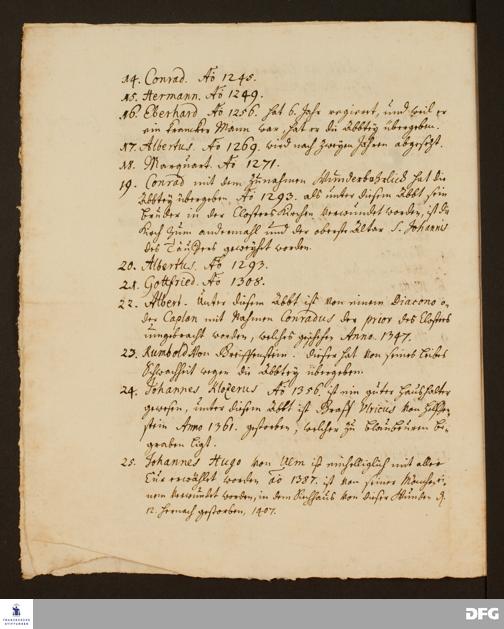 14. Conrad. Aō 1245.
15. Hermann. Aō 1249.
16. Eberhard Aō 1256. hat 6. Jahr regiert, und weil er
ein krancker Mann war, hat er die Abbteÿ übergeben.
17. Albertus. Aō 1269. wird nach zweÿen Jahren abgesetzt.
18. Marquart. Aō 1271.
19. Conrad mit dem Zunahmen hat die
Abbteÿ übergeben Aō 1293. als unter diesem Abbt sein
Bruder in der Closters Kirchen verwundet worden, ist die
Kirch zum andernmahl und der oberste Altar S. Johannis
des Täuffers geweÿht worden.
20. Albertus. Aō 1293.
21. Gottfried. Aō 1308.
22. Albert. Unter diesem Abbt ist von einem Diacono o-
der Caplan mit Nahmen Conradus der prior des Closters
umgebracht worden, welches geschehen Anno. 1347.
23. Rumbold von Greiffenstein. dieser hat von seines Leibes
Schwachheit wegen die Abbteÿ übergeben.
24. Johannes Aō 1356. ist ein guter Haußhalter
gewesen, unter diesem Abbt ist Graff Ulricus von Helffen-
stein Anno 1361. gestorben, welcher zu Blaubeuren be-
graben ligt.
25. Johannes Hugo von Ulm ist einhelliglich mit aller
erwöhlt worden aō 1387. ist von seiner Mönchen ei-
nem verwundet worden, in dem ist von dieser Wunden
12. hernach gestorben, 1407.
FRANCKESCHE
STIFTUNGEN
DFG